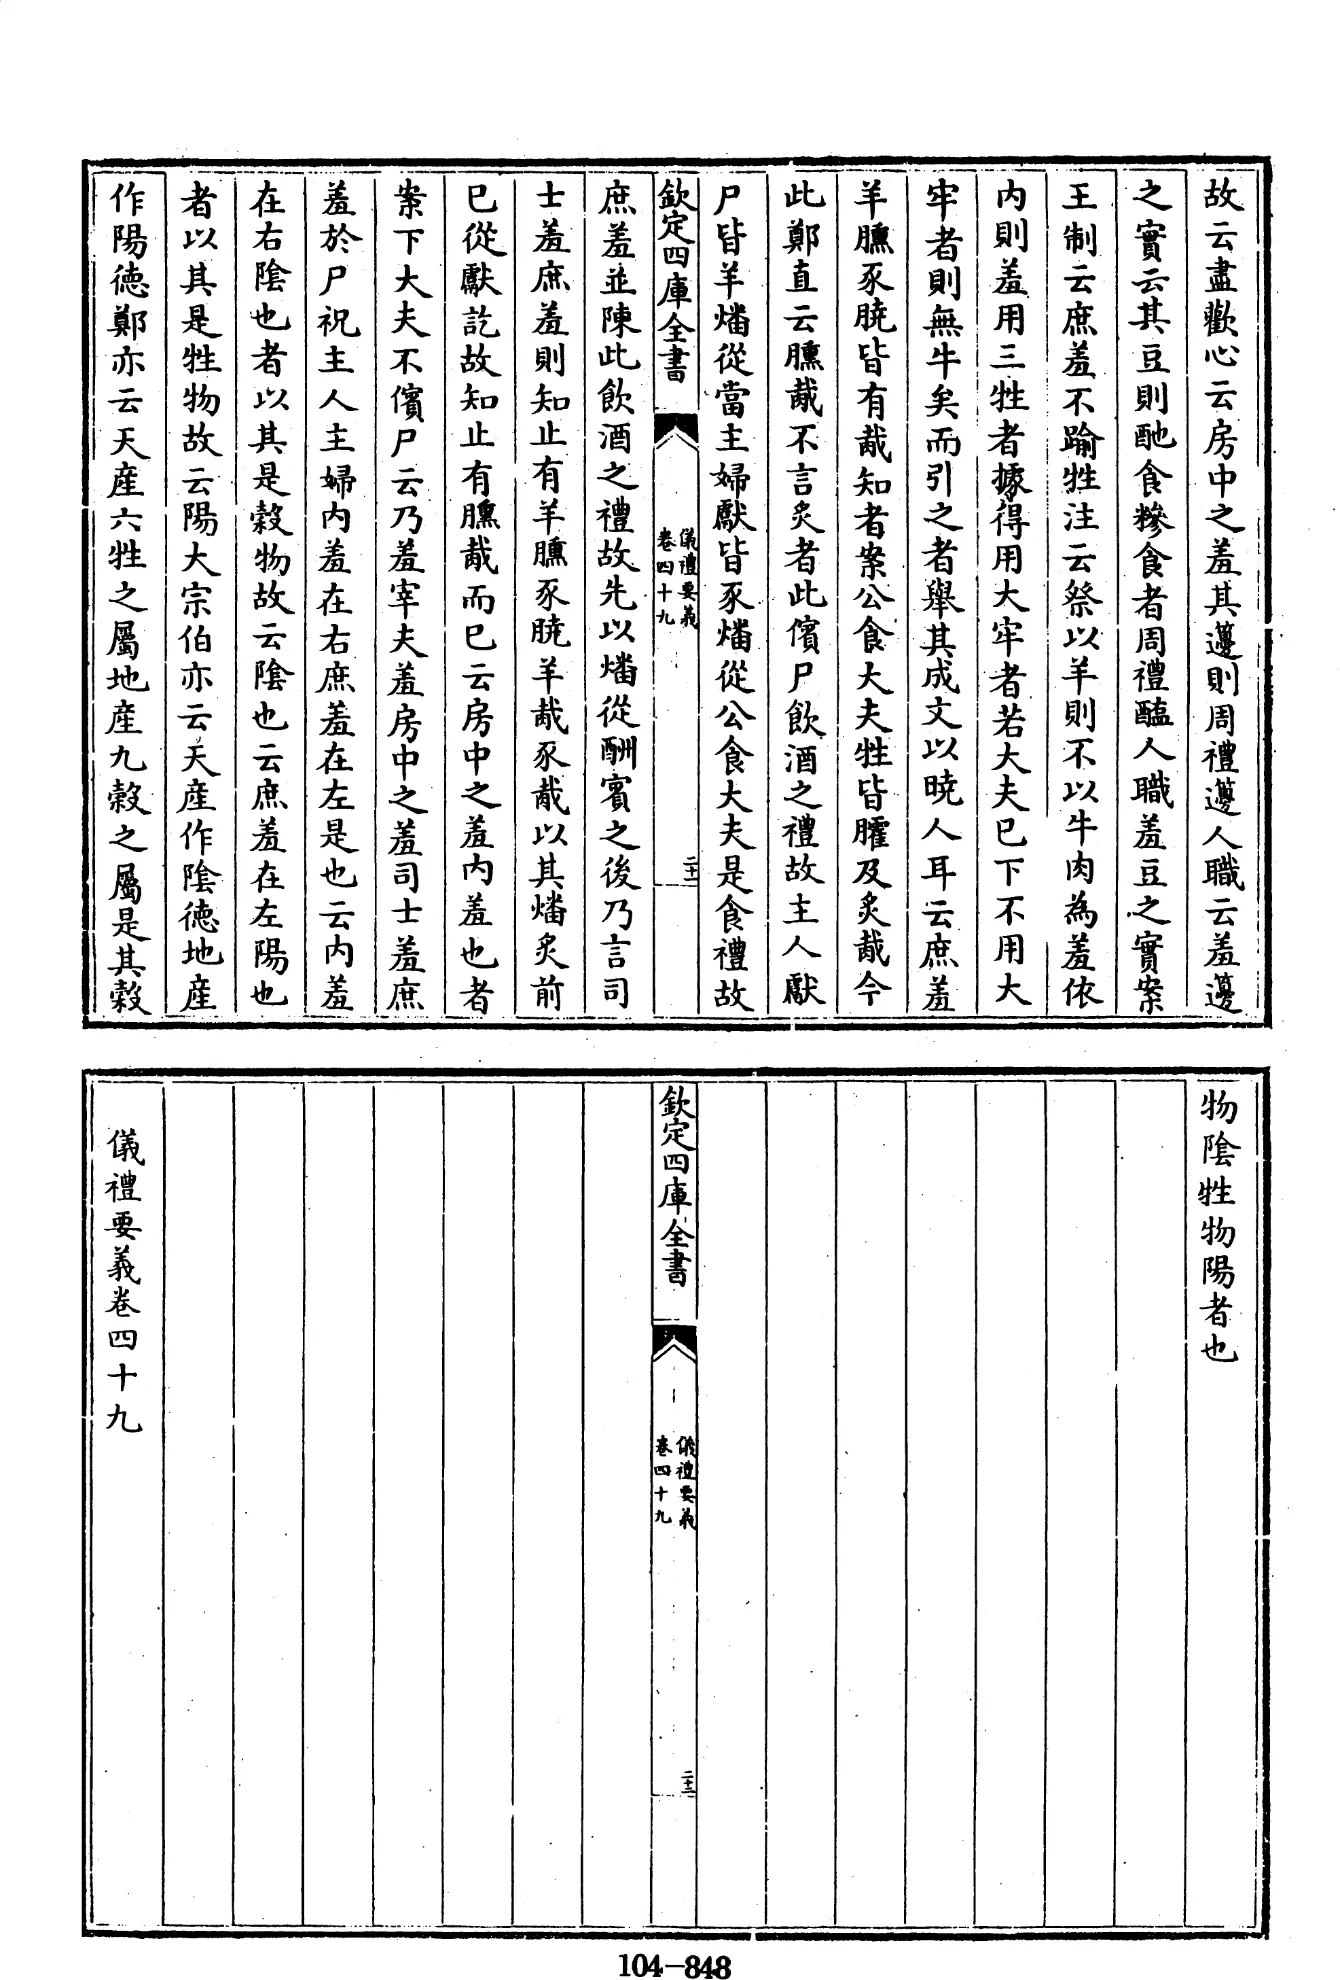 故云盡歡心云房中之羞其籩則周禮籩人職云羞籩
之實云其豆則酏食糝食者周禮醢人職羞豆之實案
王制云庶羞不踰牲注云祭以羊則不以牛肉為羞依
内則羞用三牲者據得用大牢者若大夫已下不用大
牢者則無牛矣而引之者舉其成文以曉人耳云庶羞
羊臐豕膮皆有胾知者案公食大夫牲皆臛及炙胾今
此鄭直云臐胾不言炙者此儐尸飲酒之禮故主人獻
尸皆羊燔從當主婦獻皆豕燔從公食大夫是食禮故
欽定四庫全書
儀禮要義
卷四十九
二十一
庶羞並陳此飲酒之禮故先以燔從酬賓之後乃言司
士羞庶羞則知止有羊臐豕膮羊胾豕胾以其燔炙前
已從獻訖故知止有臐胾而已云房中之羞内羞也者
案下大夫不儐尸云乃羞宰夫羞房中之羞司士羞庶
羞於尸祝主人主婦内羞在右庶羞在左是也云内羞
在右陰也者以其是穀物故云陰也云庶羞在左陽也
者以其是牲物故云陽大宗伯亦云天産作陰德地産
作陽德鄭亦云天産六牲之屬地産九穀之屬是其穀
物陰牲物陽者也
欽定四庫全書
儀禮要義
卷四十九
二十二
儀禮要義卷四十九
104-848